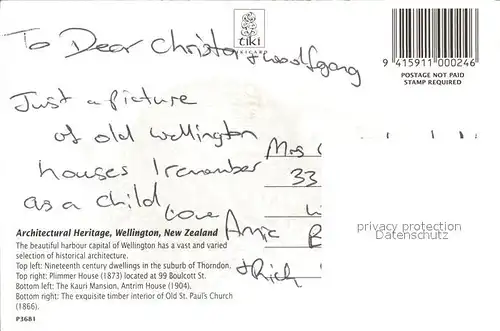 To Dear Christa & Woolfgang
tiki
9 415911 000246
POSTAGE NOT PAID
STAMP REQUIRED
Just a picture
of old wellington
houses I remember
as a child
Love Anne
& Rich
Mrs
33
Architectural Heritage, Wellington, New Zealand
The beautiful harbour capital of Wellington has a vast and varied
selection of historical architecture.
Top left: Nineteenth century dwellings in the suburb of Thorndon.
Top right: Plimmer House (1873) located at 99 Boulcott St.
Bottom left: The Kauri Mansion, Antrim House (1904).
Bottom right: The exquisite timber interior of Old St. Paul's Church
(1866).
P3681
privacy protection
Datenschutz